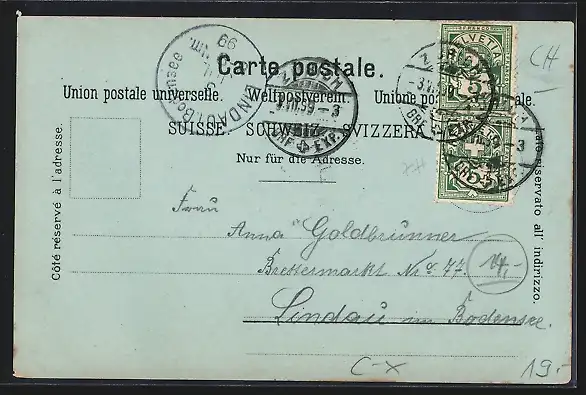 Carte postale.
Union postale universelle. Weltpostverein. Unione postale universale.
SUISSE. SCHWEIZ. SVIZZERA.
Nur für die Adresse.
Côté réservé à l'adresse.
Lato riservato all' indirizzo.
FRANCO
HELVETIA
5
HELVETIA
5
ZÜRICH
-3.VII.99-3
BRF. EXP.
LINDAU Bodensee
99
CH
Frau
Anna Goldbrunner
Brettermarkt Nro. 77.
Lindau im Bodensee.
14,-
C-X
19.-